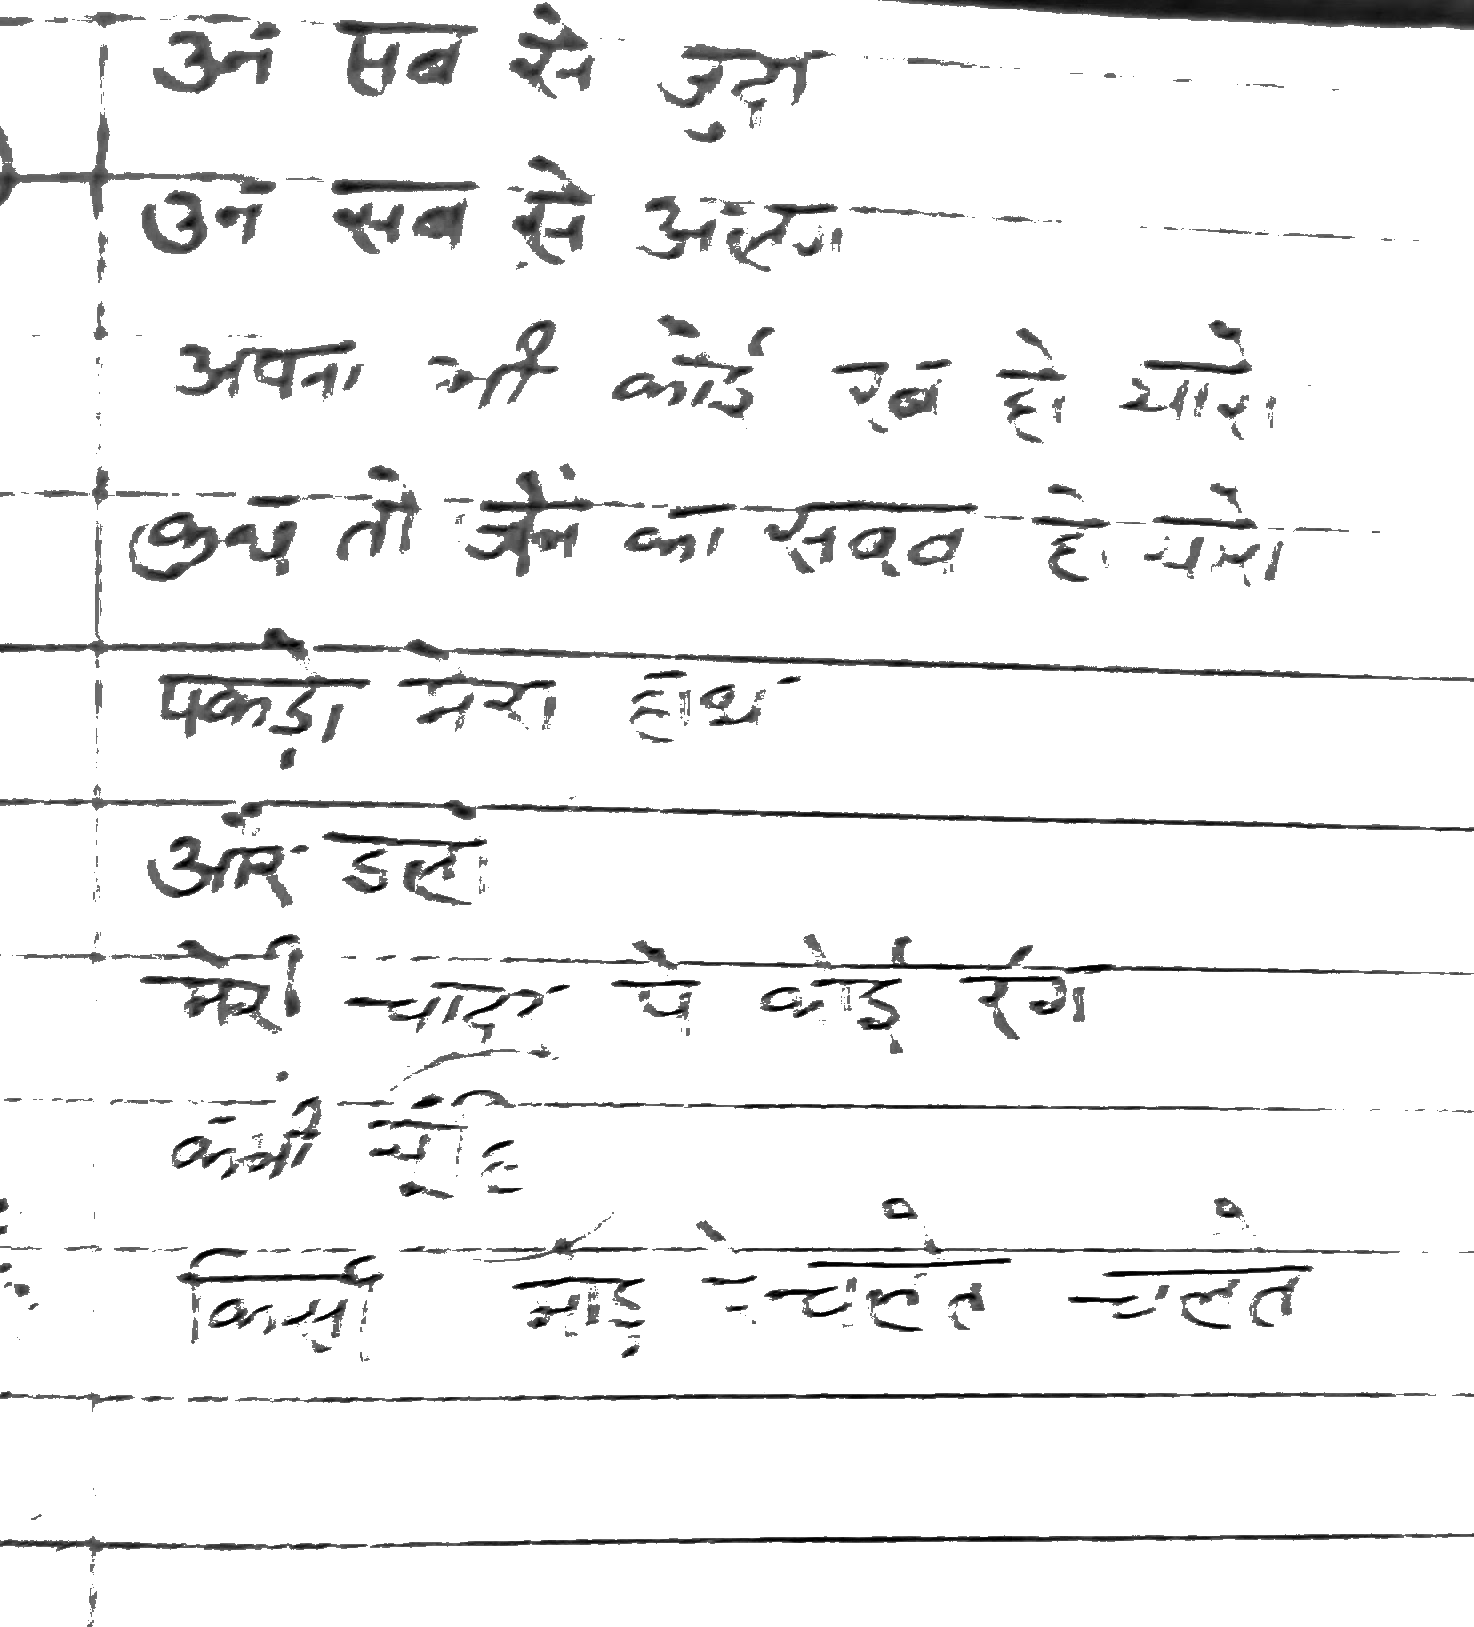 उन सब से जुदा
उन सब से अलग
अपना भी कोई रब हो यारो
कुछ तो जीने का सबब हो यारो
पकड़ो मेरा हाथ
और डालो
मेरी चादर पे कोई रंग
कभी यूँहि
किसी मोड़ पे चलते चलते